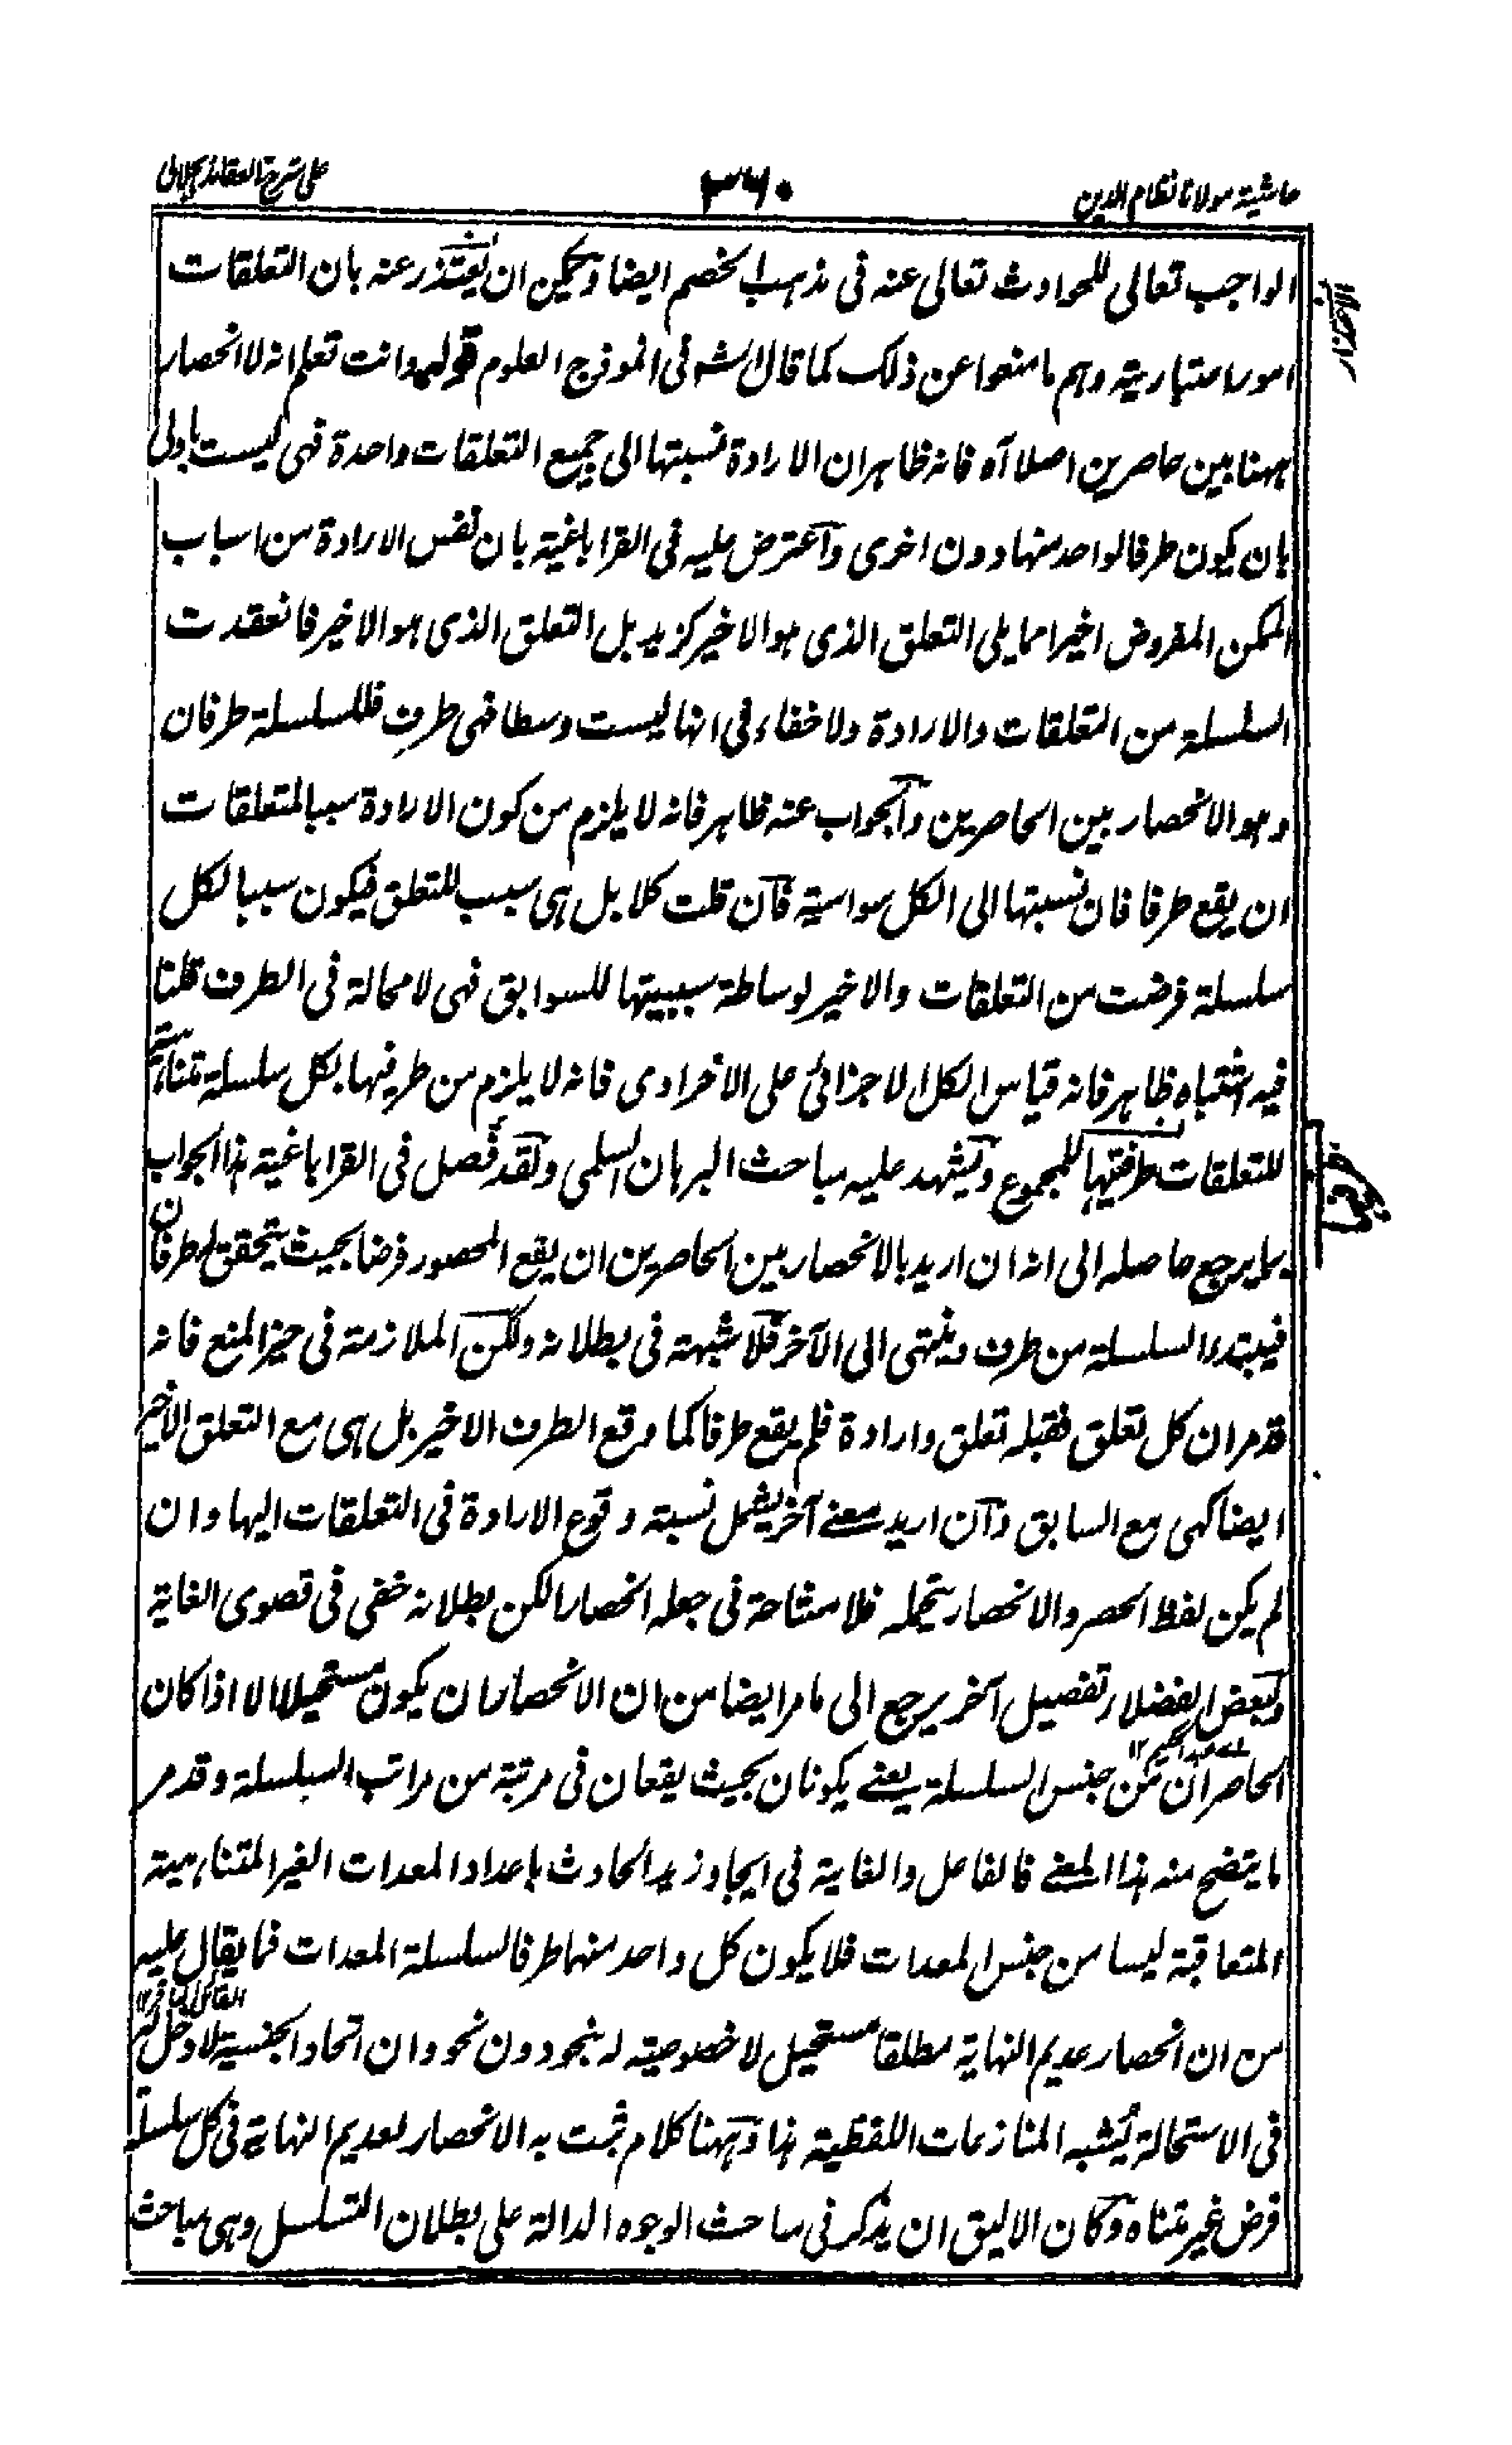 حاشية مولانا نظام الدين
٣٦٠
على شرح العقائد الجلالى
الواجب تعالى للحوادث تعالى عنه فى مذهب الخصم ايضا ويمكن ان يعتذر عنه بان التعلقات
امور اعتبارية وهم ما منعوا عن ذلك كما قال الشه فى انموذج العلوم قوله وانت تعلم انه لا انحصار
ههنا بين حاصرين اصلا آه فانه ظاهر ان الارادة نسبتها الى جميع التعلقات واحدة فهى ليست باولى
بان يكون طرفا لواحد منها دون اخرى واعترض عليه فى القراباغية بان نفس الارادة من اسباب
الممكن المفروض اخيرا مما يلى التعلق الذى هو الاخير كزيد بل التعلق الذى هو الاخير فانعقدت
السلسلة من التعلقات والارادة ولا خفاء فى انها ليست وسطا فهى طرف فللسلسلة طرفان
وهو الانحصار بين الحاصرين والجواب عنه ظاهر فانه لا يلزم من كون الارادة سببا لمتعلقات
ان يقع طرفا فان نسبتها الى الكل سواسية فان قلت كلا بل هى سبب للتعلق فيكون سببا لكل
سلسلة فرضت من التعلقات والاخير لوساطة سببيتها للسوابق فهى لا محالة فى الطرف قلنا
فيه اشتباه ظاهر فانه قياس الكل الاجزائى على الافرادى فانه لا يلزم من طرفيها بكل سلسلة متناهية
للتعلقات طرفيتها للمجموع ويشهد عليه مباحث البرهان السلمى ولقد فصل فى القراباغية هذا الجواب
بما يرجع حاصله الى انه ان اريد بالانحصار بين الحاصرين ان يقع المحصور فرضا بحيث يتحقق له طرفان
فيبتدء السلسلة من طرف وينتهى الى الآخر فلا شبهة فى بطلانه ولكن الملازمة فى حيز المنع فانه
قد مر ان كل تعلق فقبله تعلق وارادة فلم يقع طرفا كما وقع الطرف الاخير بل هى مع التعلق الاخير
ايضا كهى مع السابق وان اريد معنے آخر يشمل نسبة وقوع الارادة فى التعلقات اليها وان
لم يكن لفظ الحصر والانحصار يتحمله فلا مشاحة فى جعله انحصارا لكن بطلانه خفى فى قصوى الغاية
ولبعض الفضلاء تفصيل آخر يرجع الى ما مر ايضا من ان الانحصار ان يكون مستحيلا الا اذا كان
عبد الحكيم ١٢
الحاصران من جنس السلسلة يعنے يكونان بحيث يقعان فى مرتبة من مراتب السلسلة وقد مر
ما يتضح منه هذا المعنے فالفاعل والغاية فى ايجاد زيد الحادث باعداد المعدات الغير المتناهية
المتعاقبة ليسا من جنس المعدات فلا يكون كل واحد منها طرفا لسلسلة المعدات فما يقال عليه
من ان انحصار عديم النهاية مطلقا مستحيل لا خصوصية له بنحو دون نحو وان اتحاد الجنسية لا دخل له
فى الاستحالة يشبه المنازعات اللفظية هذا وههنا كلام ثبت به الانحصار لعديم النهاية فى كل سلسلة
فرض غير متناه وكان الاليق ان يذكر فى مباحث الوجوه الدالة على بطلان التسلسل وهى مباحث